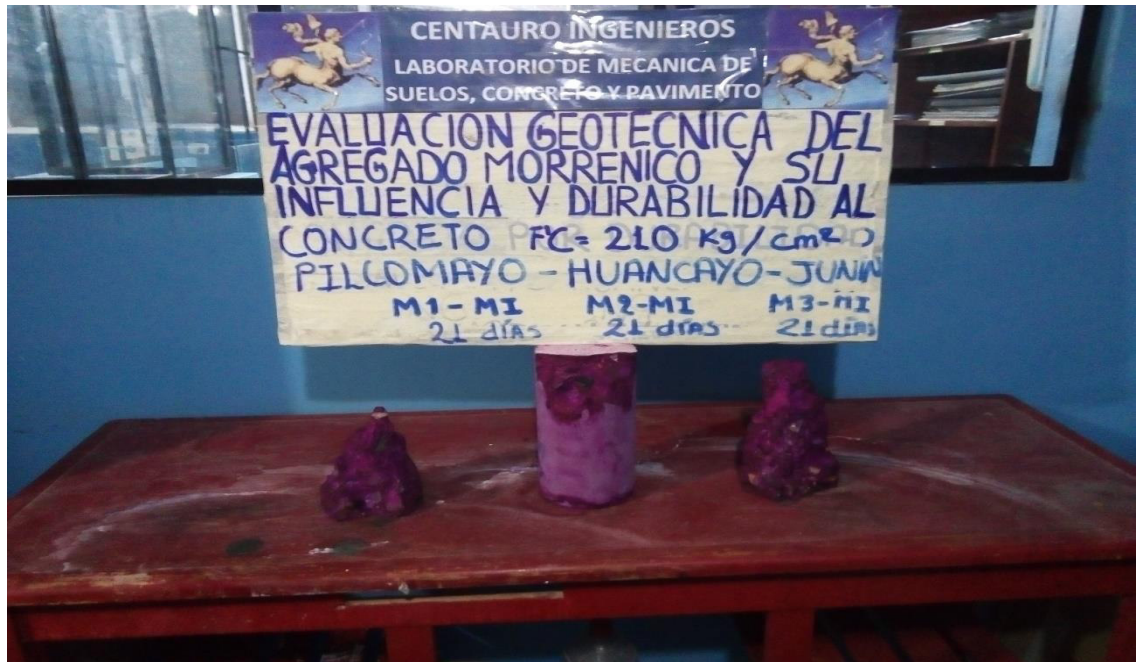 CENTAURO INGENIEROS
LABORATORIO DE MECANICA DE
SUELOS, CONCRETO Y PAVIMENTO
EVALUACION GEOTECNICA DEL
AGREGADO MORRENICO Y SU
INFLUENCIA Y DURABILIDAD AL
CONCRETO F'C= 210 Kg/cm²
PILCOMAYO - HUANCAYO - JUNIN
M1 - MI M2-MI M3-MI
21 días 21 días 21 días